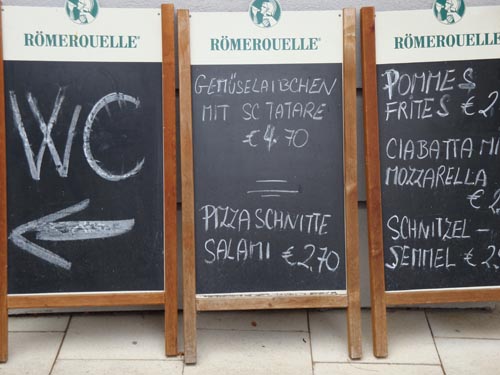 RÖMERQUELLE
WC
RÖMERQUELLE
GEMÜSELAIBCHEN
MIT SC TATARE
€ 4.70
PIZZASCHNITTE
SALAMI € 2,70
RÖMERQUELLE
POMMES
FRITES € 2
CIABATTA MI
MOZZARELLA
€
SCHNITZEL-
SEMMEL € 2